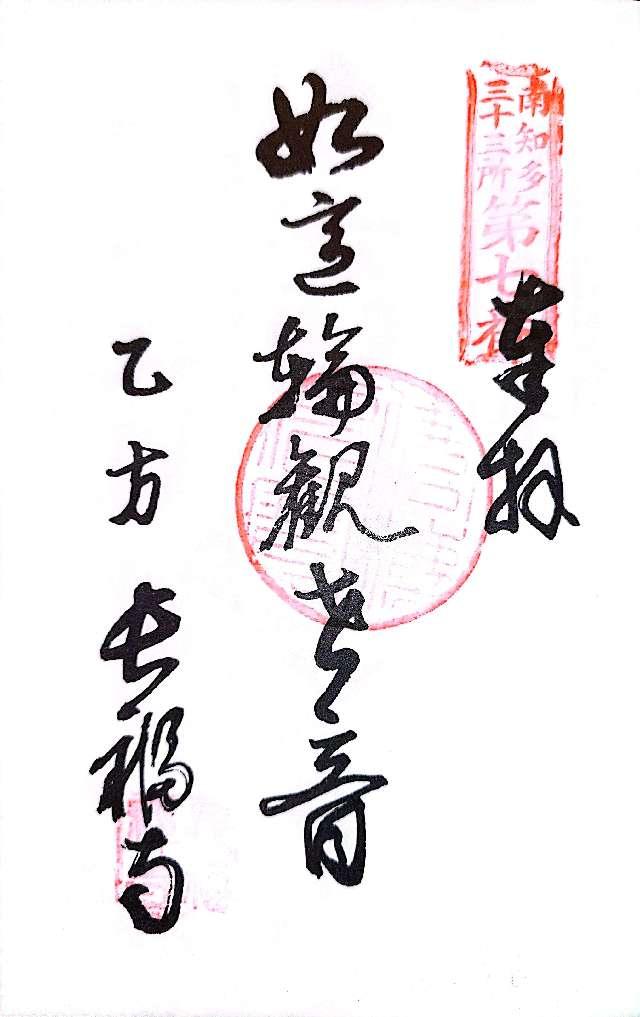 南知多
三十三所
第七番
奉拝
如意輪観世音
乙方 長福寺